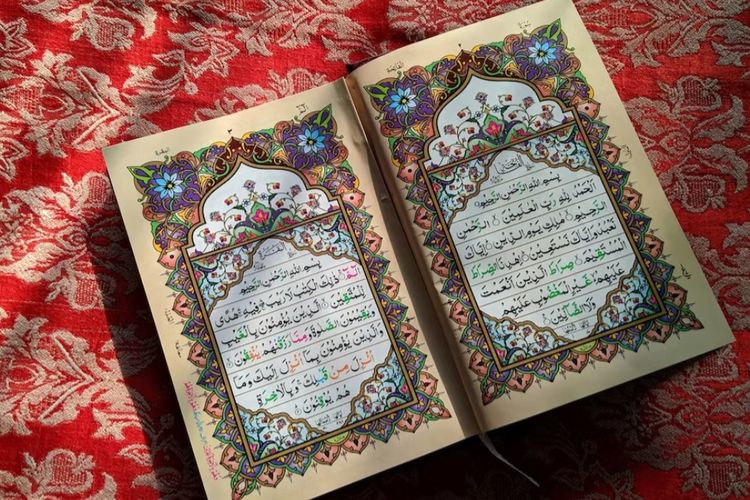 الفاتحة
٢
بِسْمِ اللهِ الرَّحْمٰنِ الرَّحِيْمِ
اَلْحَمْدُ لِلّٰهِ رَبِّ الْعٰلَمِيْنَ الرَّحْمٰنِ
الرَّحِيْمِ مٰلِكِ يَوْمِ الدِّيْنِ اِيَّاكَ
نَعْبُدُ وَاِيَّاكَ نَسْتَعِيْنُ اِهْدِنَا الصِّرَاطَ
الْمُسْتَقِيْمَ صِرَاطَ الَّذِيْنَ اَنْعَمْتَ
عَلَيْهِمْ غَيْرِ الْمَغْضُوْبِ عَلَيْهِمْ
وَلَا الضَّآلِّيْنَ
البقرة
٣
بِسْمِ اللهِ الرَّحْمٰنِ الرَّحِيْمِ
الٓمّٓ ذٰلِكَ الْكِتٰبُ لَا رَيْبَ فِيْهِ هُدًى
لِّلْمُتَّقِيْنَ الَّذِيْنَ يُؤْمِنُوْنَ بِالْغَيْبِ
وَيُقِيْمُوْنَ الصَّلٰوةَ وَمِمَّا رَزَقْنٰهُمْ يُنْفِقُوْنَ
وَالَّذِيْنَ يُؤْمِنُوْنَ بِمَآ اُنْزِلَ اِلَيْكَ وَمَآ
اُنْزِلَ مِنْ قَبْلِكَ وَبِالْاٰخِرَةِ
هُمْ يُوْقِنُوْنَ